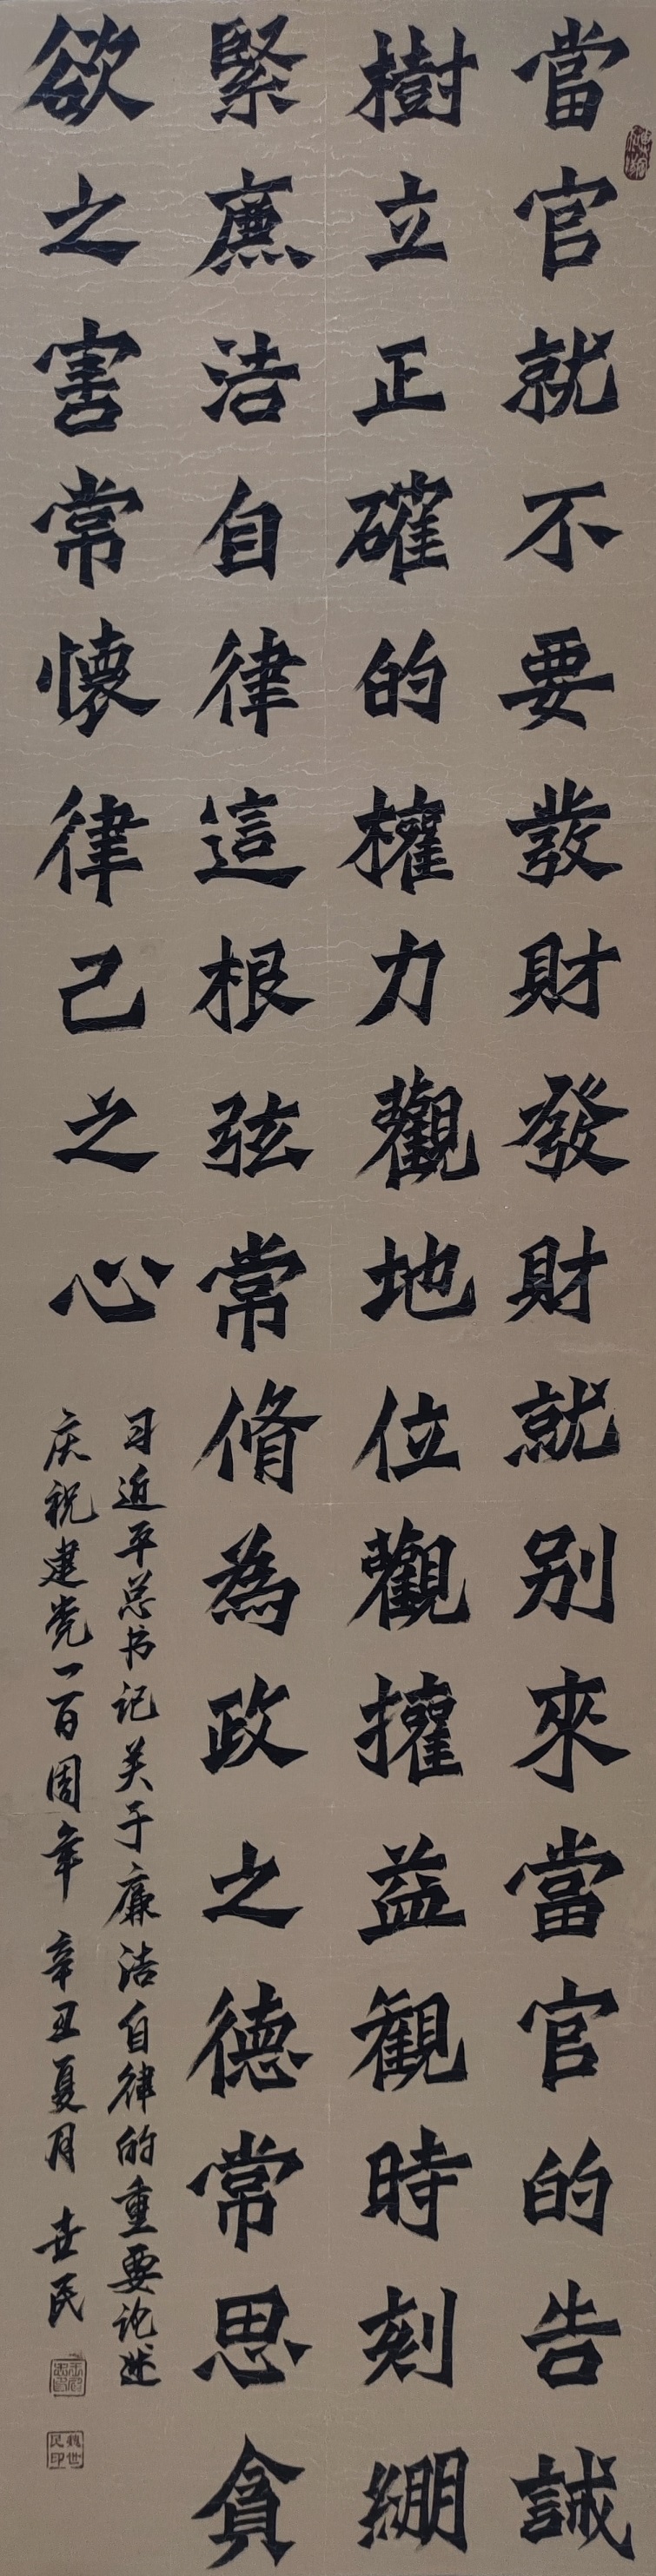 當官就不要發財發財就别來當官的告誡
樹立正確的權力觀地位觀權益觀時刻繃
緊廉洁自律這根弦常脩為政之德常思貪
欲之害常懷律己之心
习近平总书记关于廉洁自律的重要论述
庆祝建党一百周年 辛丑夏月 世民